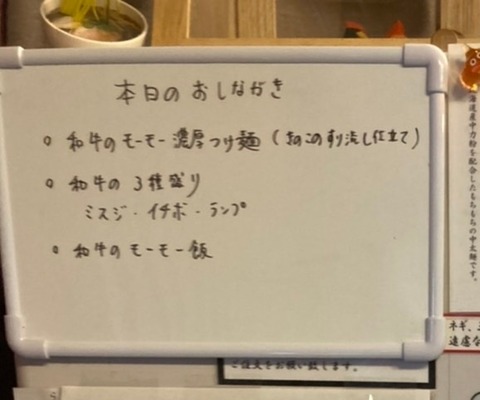 本日のおしながき
○ 和牛のモーモー濃厚つけ麺 (きのこのすり流し仕立て)
○ 和牛の3種盛り
ミスジ・イチボ・ランプ
○ 和牛のモーモー飯
海道産中力粉を配合したもちもちの中太麺です。
ネギ、
遠慮な
ご注文をお願い致します。